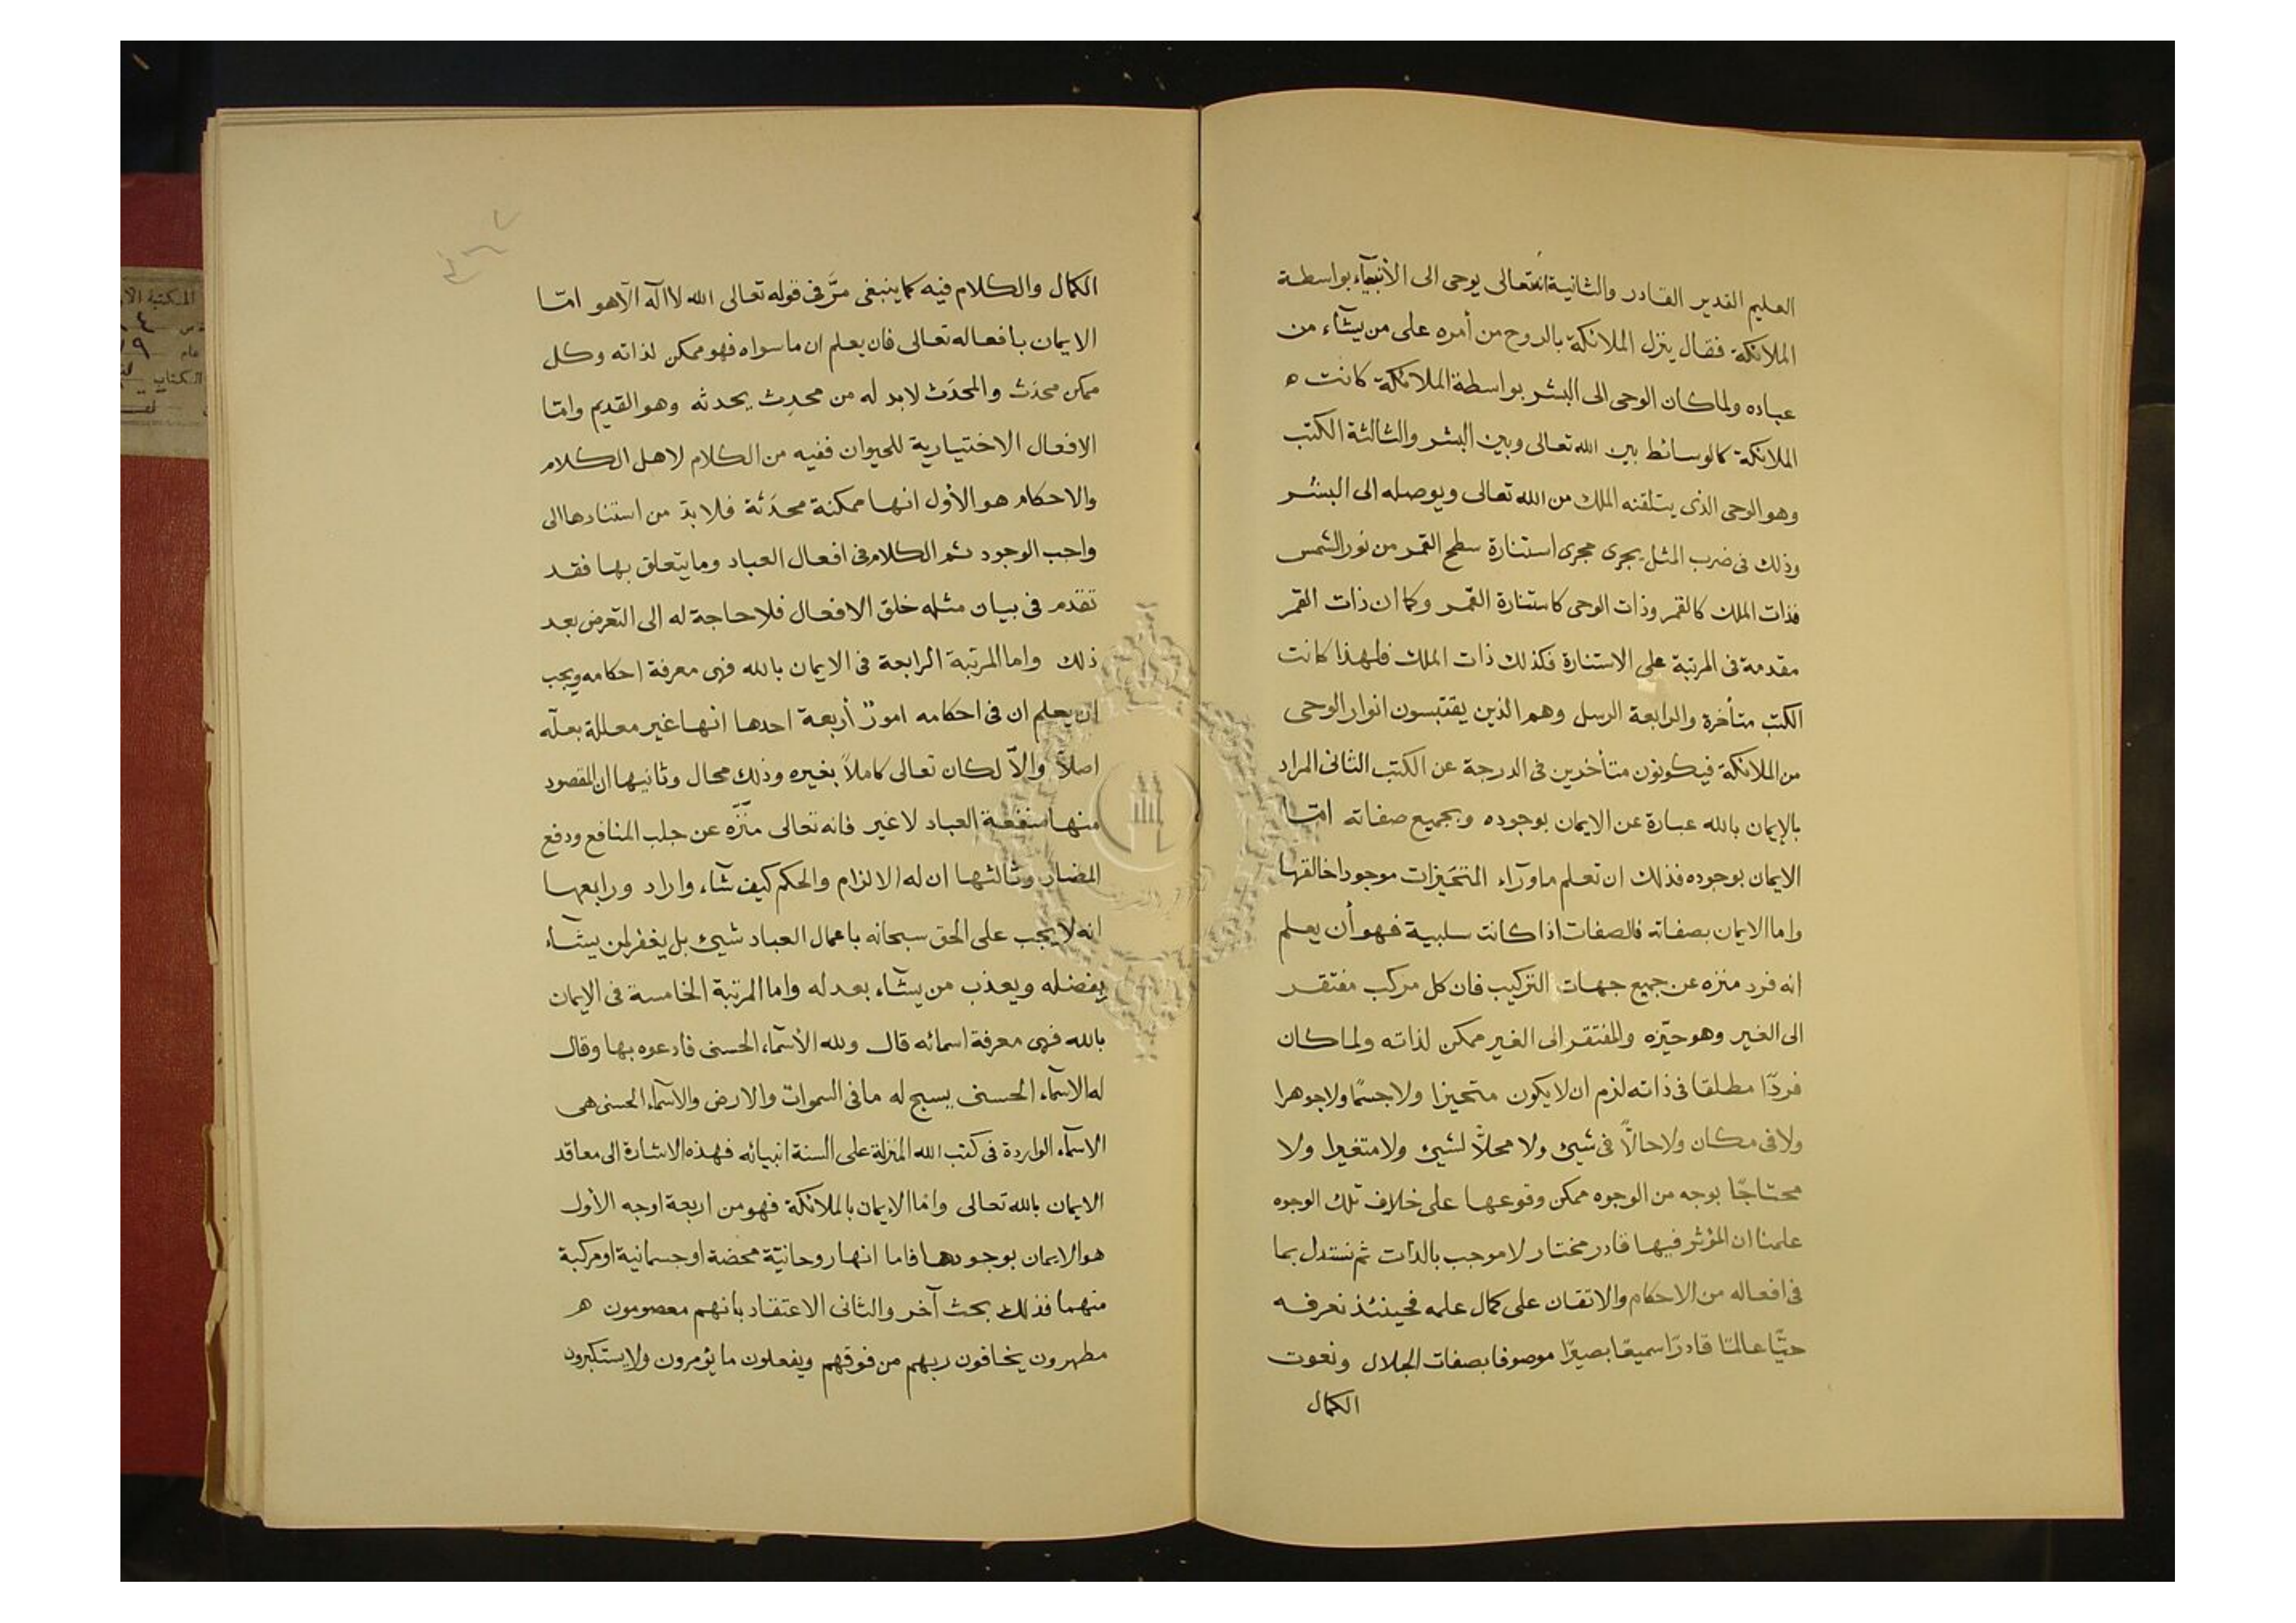 العليم القدير القادر والثانية انه تعالى يوحى الى الأنبيآء بواسطة
الملائكة فقال ينزل الملائكة بالروح من أمره على من يشآء من
عباده ولما كان الوحى الى البشر بواسطة الملائكة كانت ه
الملائكة كالوسائط بين الله تعالى وبين البشر والثالثة الكتب
وهو الوحى الذى يتلقنه الملك من الله تعالى ويوصله الى البشر
وذلك فى ضرب المثل يجرى مجرى استنارة سطح القمر من نور الشمس
فذات الملك كالقمر وذات الوحى كاستنارة القمر وكما ان ذات القمر
مقدمة فى المرتبة على الاستنارة فكذلك ذات الملك فلهذا كانت
الكتب متأخرة والرابعة الرسل وهم الذين يقتبسون انوار الوحى
من الملائكة فيكونون متأخرين فى الدرجة عن الكتب الثانى المراد
بالإيمان بالله عبارة عن الايمان بوجوده وبجميع صفاته امّا
الايمان بوجوده فذلك ان تعلم ماورآء المتحَيزات موجودا خالقها
واما الايمان بصفاته فالصفات اذا كانت سلبية فهو أن يعلم
انه فرد منزه عن جميع جهات التركيب فان كل مركب مفتقر
الى الغير وهو حيّزه والمفتقر الى الغير ممكن لذاته ولما كان
فردًا مطلقا فى ذاته لزم ان لا يكون متحيزا ولا جسمًا ولا جوهرا
ولا فى مكان ولا حالاًّ فى شيئ ولا محلاًّ لشيئ ولا متغيرا ولا
محتاجًا بوجه من الوجوه ممكن وقوعها على خلاف تلك الوجوه
علمنا ان المؤثر فيها قادر مختار لا موجب بالذات ثم نستدل بما
فى افعاله من الاحكام والاتقان على كمال علمه فحينئذ نعرفه
حيًّا عالمًا قادرًا سميعًا بصيرًا موصوفا بصفات الجلال ونعوت
الكمال
الكمال والكلام فيه كما ينبغى مرَّ فى قوله تعالى الله لا اله الّا هو امّا
الايمان بافعاله تعالى فان يعلم ان ما سواه فهو ممكن لذاته وكل
ممكن محدَث والمحدَث لا بد له من محدِث يحدثه وهو القديم وامّا
الافعال الاختيارية للحيوان ففيه من الكلام لاهل الكلام
والاحكام هو الأول انها ممكنة محدَثة فلا بدّ من استنادها الى
واجب الوجود ثم الكلام فى افعال العباد وما يتعلق بها فقد
تقدم فى بيان مثله خلق الافعال فلا حاجة له الى التعرض بعد
ذلك واما المرتبة الرابعة فى الايمان بالله فهى معرفة احكامه ويجب
ان يعلم ان فى احكامه امورٌ أربعة احدها انها غير معللة بعلّه
اصلاً والاّ لكان تعالى كاملاً بغيره وذلك محال وثانيها ان المقصود
منها منفعة العباد لا غير فانه تعالى منّزّه عن جلب المنافع ودفع
المضار وثالثها ان له الالزام والحكم كيف شآء واراد ورابعها
انه لا يجب على الحق سبحانه باعمال العباد شيئ بل يغفر لمن يشآء
بفضله ويعذب من يشآء بعدله واما المرتبة الخامسة فى الايمان
بالله فهى معرفة اسمائه قال ولله الأسمآء الحسنى فادعوه بها وقال
له الاسمآء الحسنى يسبح له ما فى السموات والارض والاسمآء الحسنى هى
الاسمآء الواردة فى كتب الله المنزلة على السنة انبيائه فهذه الاشارة الى معاقد
الايمان بالله تعالى وامّا الايمان بالملائكة فهو من اربعة اوجه الأول
هو الايمان بوجودها فاما انها روحانيّة محضة او جسمانية او مركبة
منهما فذلك بحث آخر والثانى الاعتقاد بانهم معصومون ه
مطهرون يخافون ربهم من فوقهم ويفعلون ما يؤمرون ولا يستكبرون